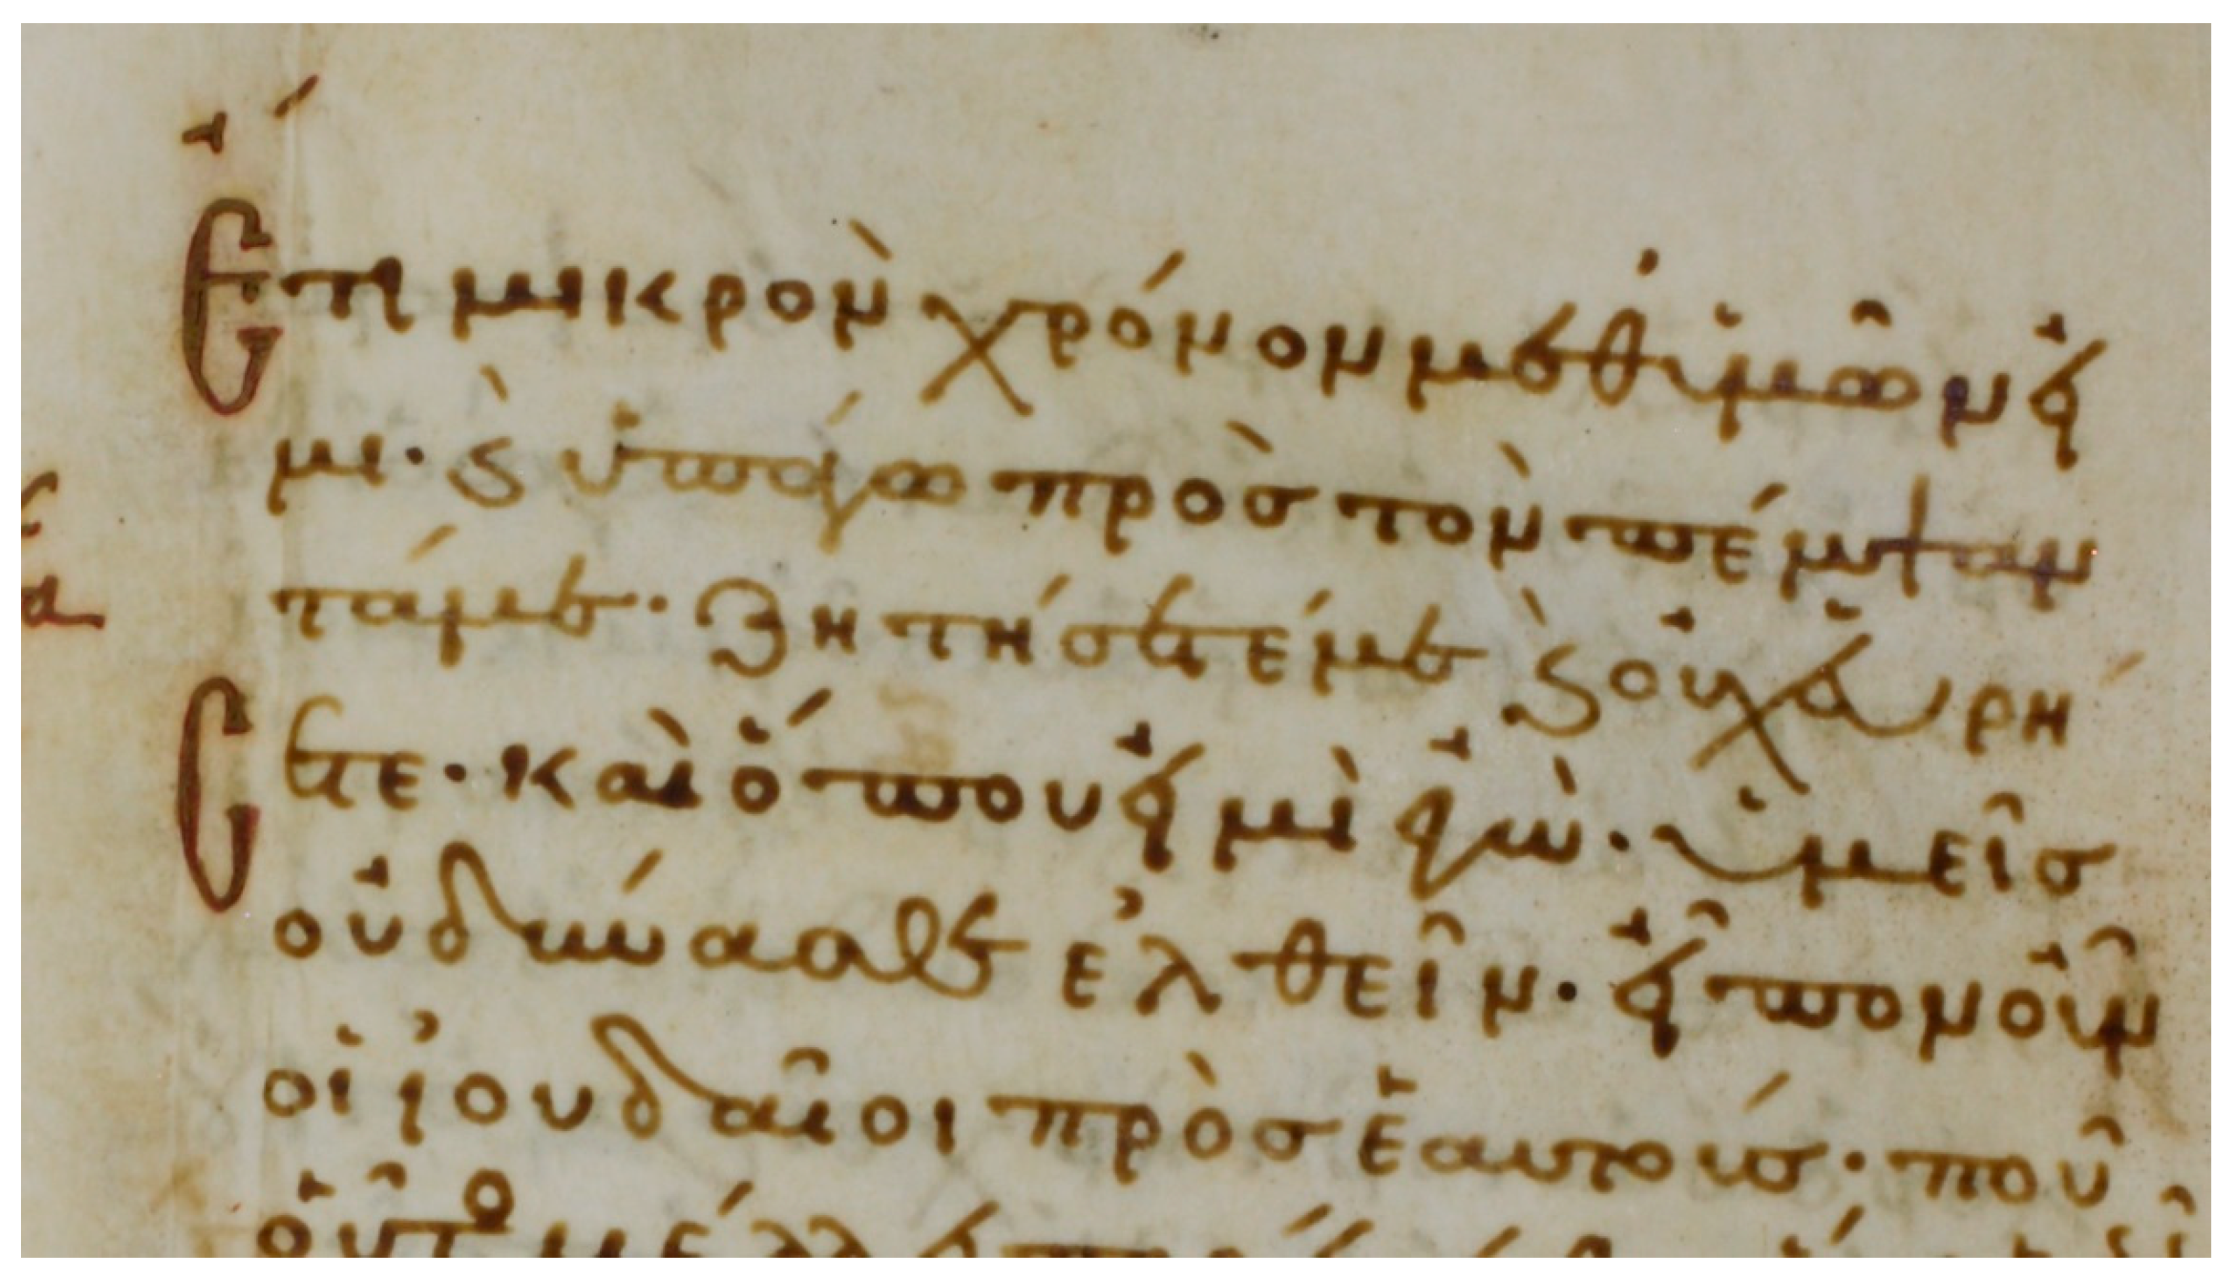 Ἔτι μικρὸν χρόνον μεθ ὑμῶν εἰ
μι· ϗ ὑπάγω πρὸς τὸν πέμψαν
τά με· Ζητήσετέ με ϗ οὐχ εὑρή
σετε· καὶ ὅπου εἰμὶ ἐγὼ· ὑμεῖς
οὐ δύνασθε ἐλθεῖν· εἶπον οὖν
οἱ ἰουδαῖοι πρὸς ἑαυτούς· ποῦ
οὗτο μέλλει